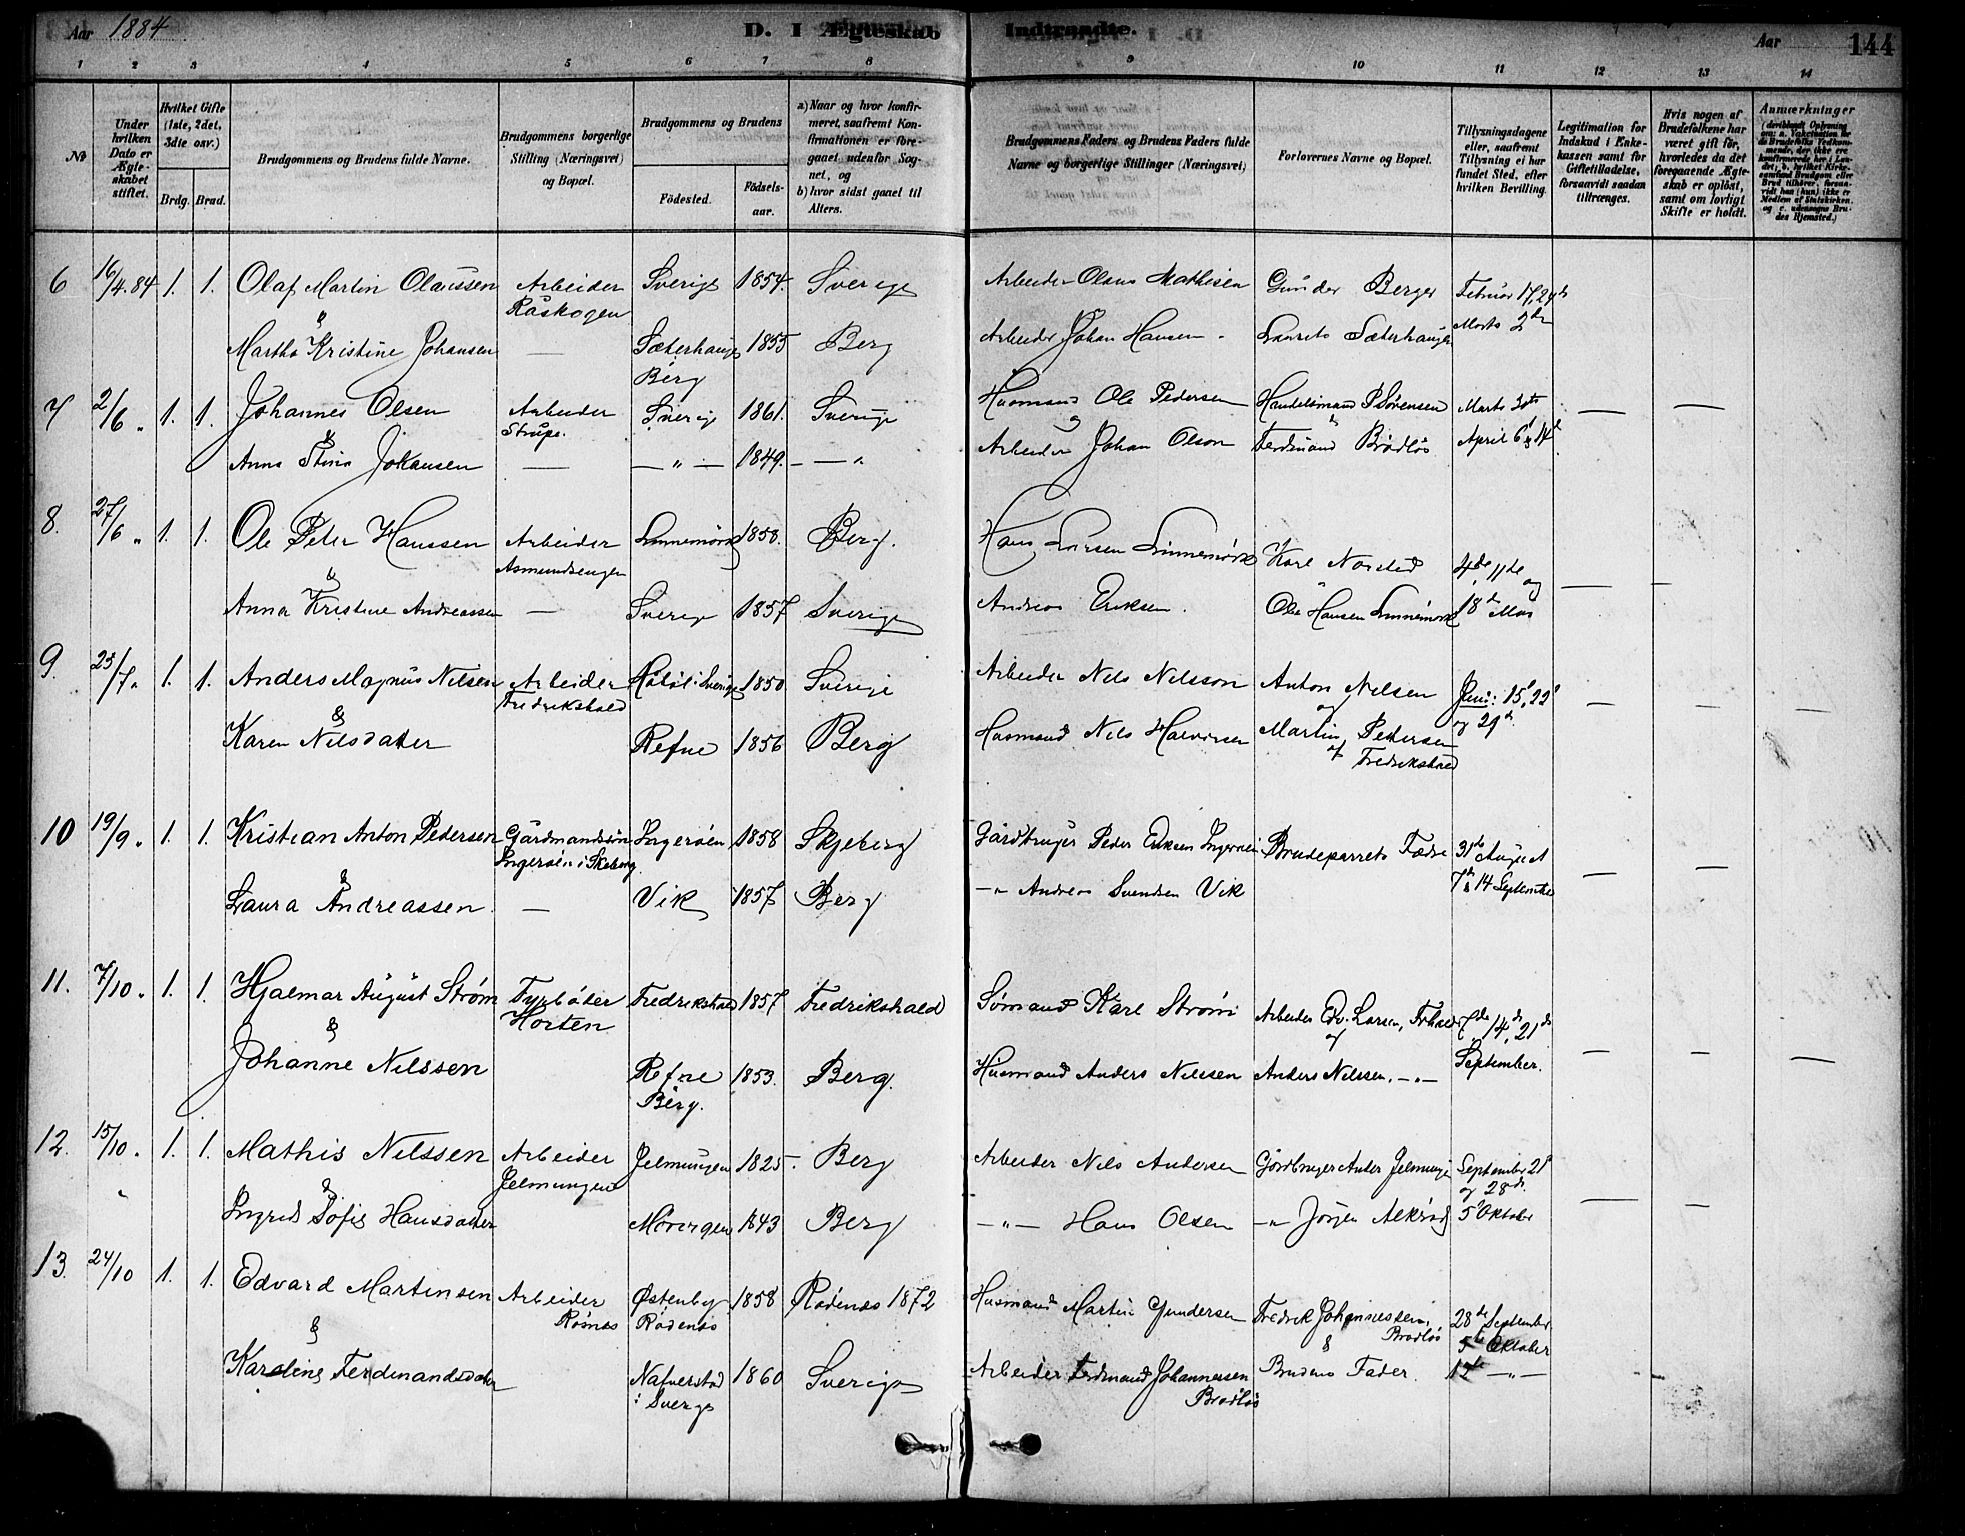 Aar 1884 D. I Ægteskab Indtraadte. Aar 144
1 2 3 4 5 6 7 8 9 10 11 12 13 14
No
Under hvilken Dato er Ægteskabet stiftet.
Hvilket Gifte (1ste, 2det, 3die osv.)
Brdg. Brud.
Brudgommens og Brudens fulde Navne.
Brudgommens borgerlige Stilling (Næringsvei) og Bopæl.
Brudgommens og Brudens
Födested. Födsels-aar.
a) Naar og hvor konfirmeret, saafremt Konfirmationen er foregaaet udenfor Sognet, og
b) hvor sidst gaaet til Alters.
Brudgommens Faders og Brudens Faders fulde Navne og borgerlige Stillinger (Næringsvei)
Forlovernes Navne og Bopæl.
Tillysningsdagene eller, saafremt Tillysning ei har fundet Sted, efter hvilken Bevilling.
Legitimation for Indskud i Enkekassen samt for Giftetilladelse, forsaavidt saadan tiltrænges.
Hvis nogen af Brudefolkene har været gift før, hvorledes da det foregaaende Ægteskab er opløst, samt om lovligt Skifte er holdt.
Anmærkninger
6 16/4.84 1. 1. Olaf Martin Olaussen Arbeider Sverige 1854. Sverige Arbeider Olaus Mathisen Gunder Berger Februar 17, 24de
" Råskogen Marts 2den
Martha Kristine Johansen — Sæterhaugen 1855 Berg Arbeider Johan Hansen Laurets Sæterhaugen
Berg
7 2/6 " 1. 1. Johannes Olsen Arbeider Sverig 1861. Sverige Husmand Ole Pedersen Handelsmand P Sørensen Marts 30te — —
& Strupe. og & April 6 & 14d
Anna Stina Johansen — — " — 1849. — — " Arbeider Johan Olson Ferdinand Brödløs
8. 27/6 " 1. 1. Ole Peter Hanssen Arbeider Linnemörk 1850. Berg. Hans Larsen Linnemörk Karl Norsted 4de, 11de og — —
& Asmundsengen "
Anna Kristine Andreassen — Sverige 1857 Sverige Andreas Eriksen. Ole Hansen Linnemörk 18de Mai
9. 25/7 " 1. 1. Anders Magnus Nilsen Arbeider Håböl i Sverige 1850 Sverige Arbeider Nils Nilsson Anton Nilsen Juni: 15d, 22d — — —
& Fredrikshald og og 29d
Karen Nilsdatter Refne 1856 Berg Husmand Nils Halvorsen Martin Pedersen
af Fredrikshald
10 19/9 " 1. 1. Kristian Anton Pedersen Gårdmandssön Ingeröen 1858 Skjeberg Gårdbruger Peder Eriksen Ingeröen Brudeparrets Fædre 31te August — —
& Ingeröen i Skeberg 7de & 14 September
Laura Andreassen. — Vik 1857 Berg — " Andreas Svendsen Vik
11. 7/10 " 1. 1. Hjalmar August Strøm Fyrböter Fredrikshald 1857 Fredrikshald Sømand Karl Strøm Arbeider Edv. Larsen, Frhald 7de, 14de, 21de — — —
& Horten og
Johanne Nilssen Refne 1853. Berg. Husmand Anders Nilssen Anders Nilssen. — " — September.
Berg.
12. 15/10 " 1. 1. Mathis Nilssen Arbeider Jelmungen 1825 Berg Arbeider Nils Andersen Gårdbruger Anders Jelmungen September 21d —
" & Jelmungen og 28de
Ingrid Sofie Hansdatter 1843 Berg — " — Hans Olsen — " Jörgen 5d Oktober
13. 24/10 1. 1. Edvard Martinsen Arbeider Østenby 1858 Rødenæs 1872 Husmand Martin Gundersen Fredrik Johannessen, 28de September
& Römes Rødenæs & Brödløs 5te Oktober
Karoline Ferdinandsdatter Nafverstad 1860 Sverige Arbeider Ferdinand Johannessen Brudens Fader. 12te — " —
i Sverge Brödløs